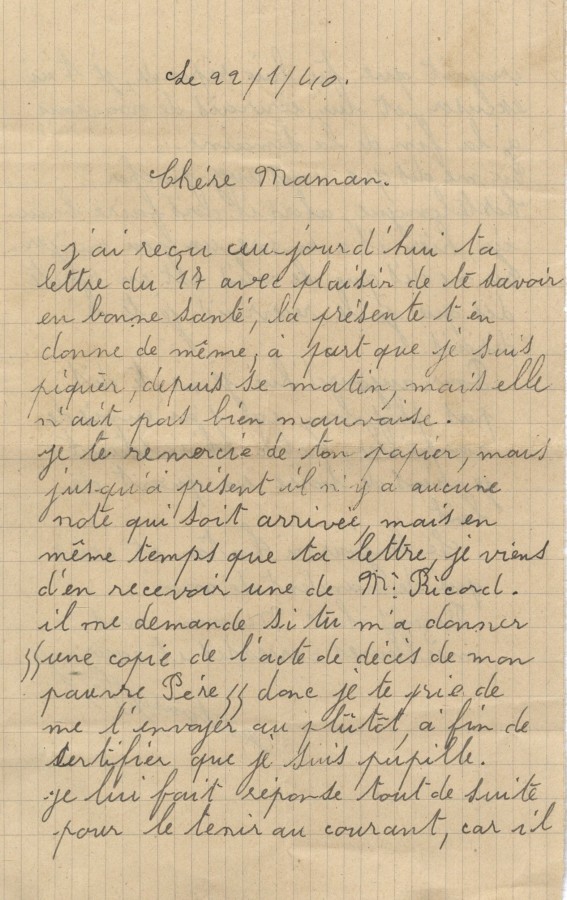 Le 22/1/40.
Chére Maman.
j'ai reçu au jourd'hui ta
lettre du 17 avec plaisir de té savoir
en bonne santé, la présente t'én
donne de même, à part que je suis
piquèr, depuis se matin, mais elle
n'ait pas bien mauvaise.
je te remercie de ton papier, mais
jusqu'à présent il n'y a aucune
note qui soit arrivée, mais en
même temps que ta lettre, je viens
d'en recevoir une de Mr Ricord.
il me demande si tu m'a donner
une copie de l'acte de décès de mon
pauvre Pére donc je te prie de
me l'envoyer au plûtôt, a fin de
sertifier que je suis pupille.
je lui fait réponse tout de suite
pour le tenir au courant, car il